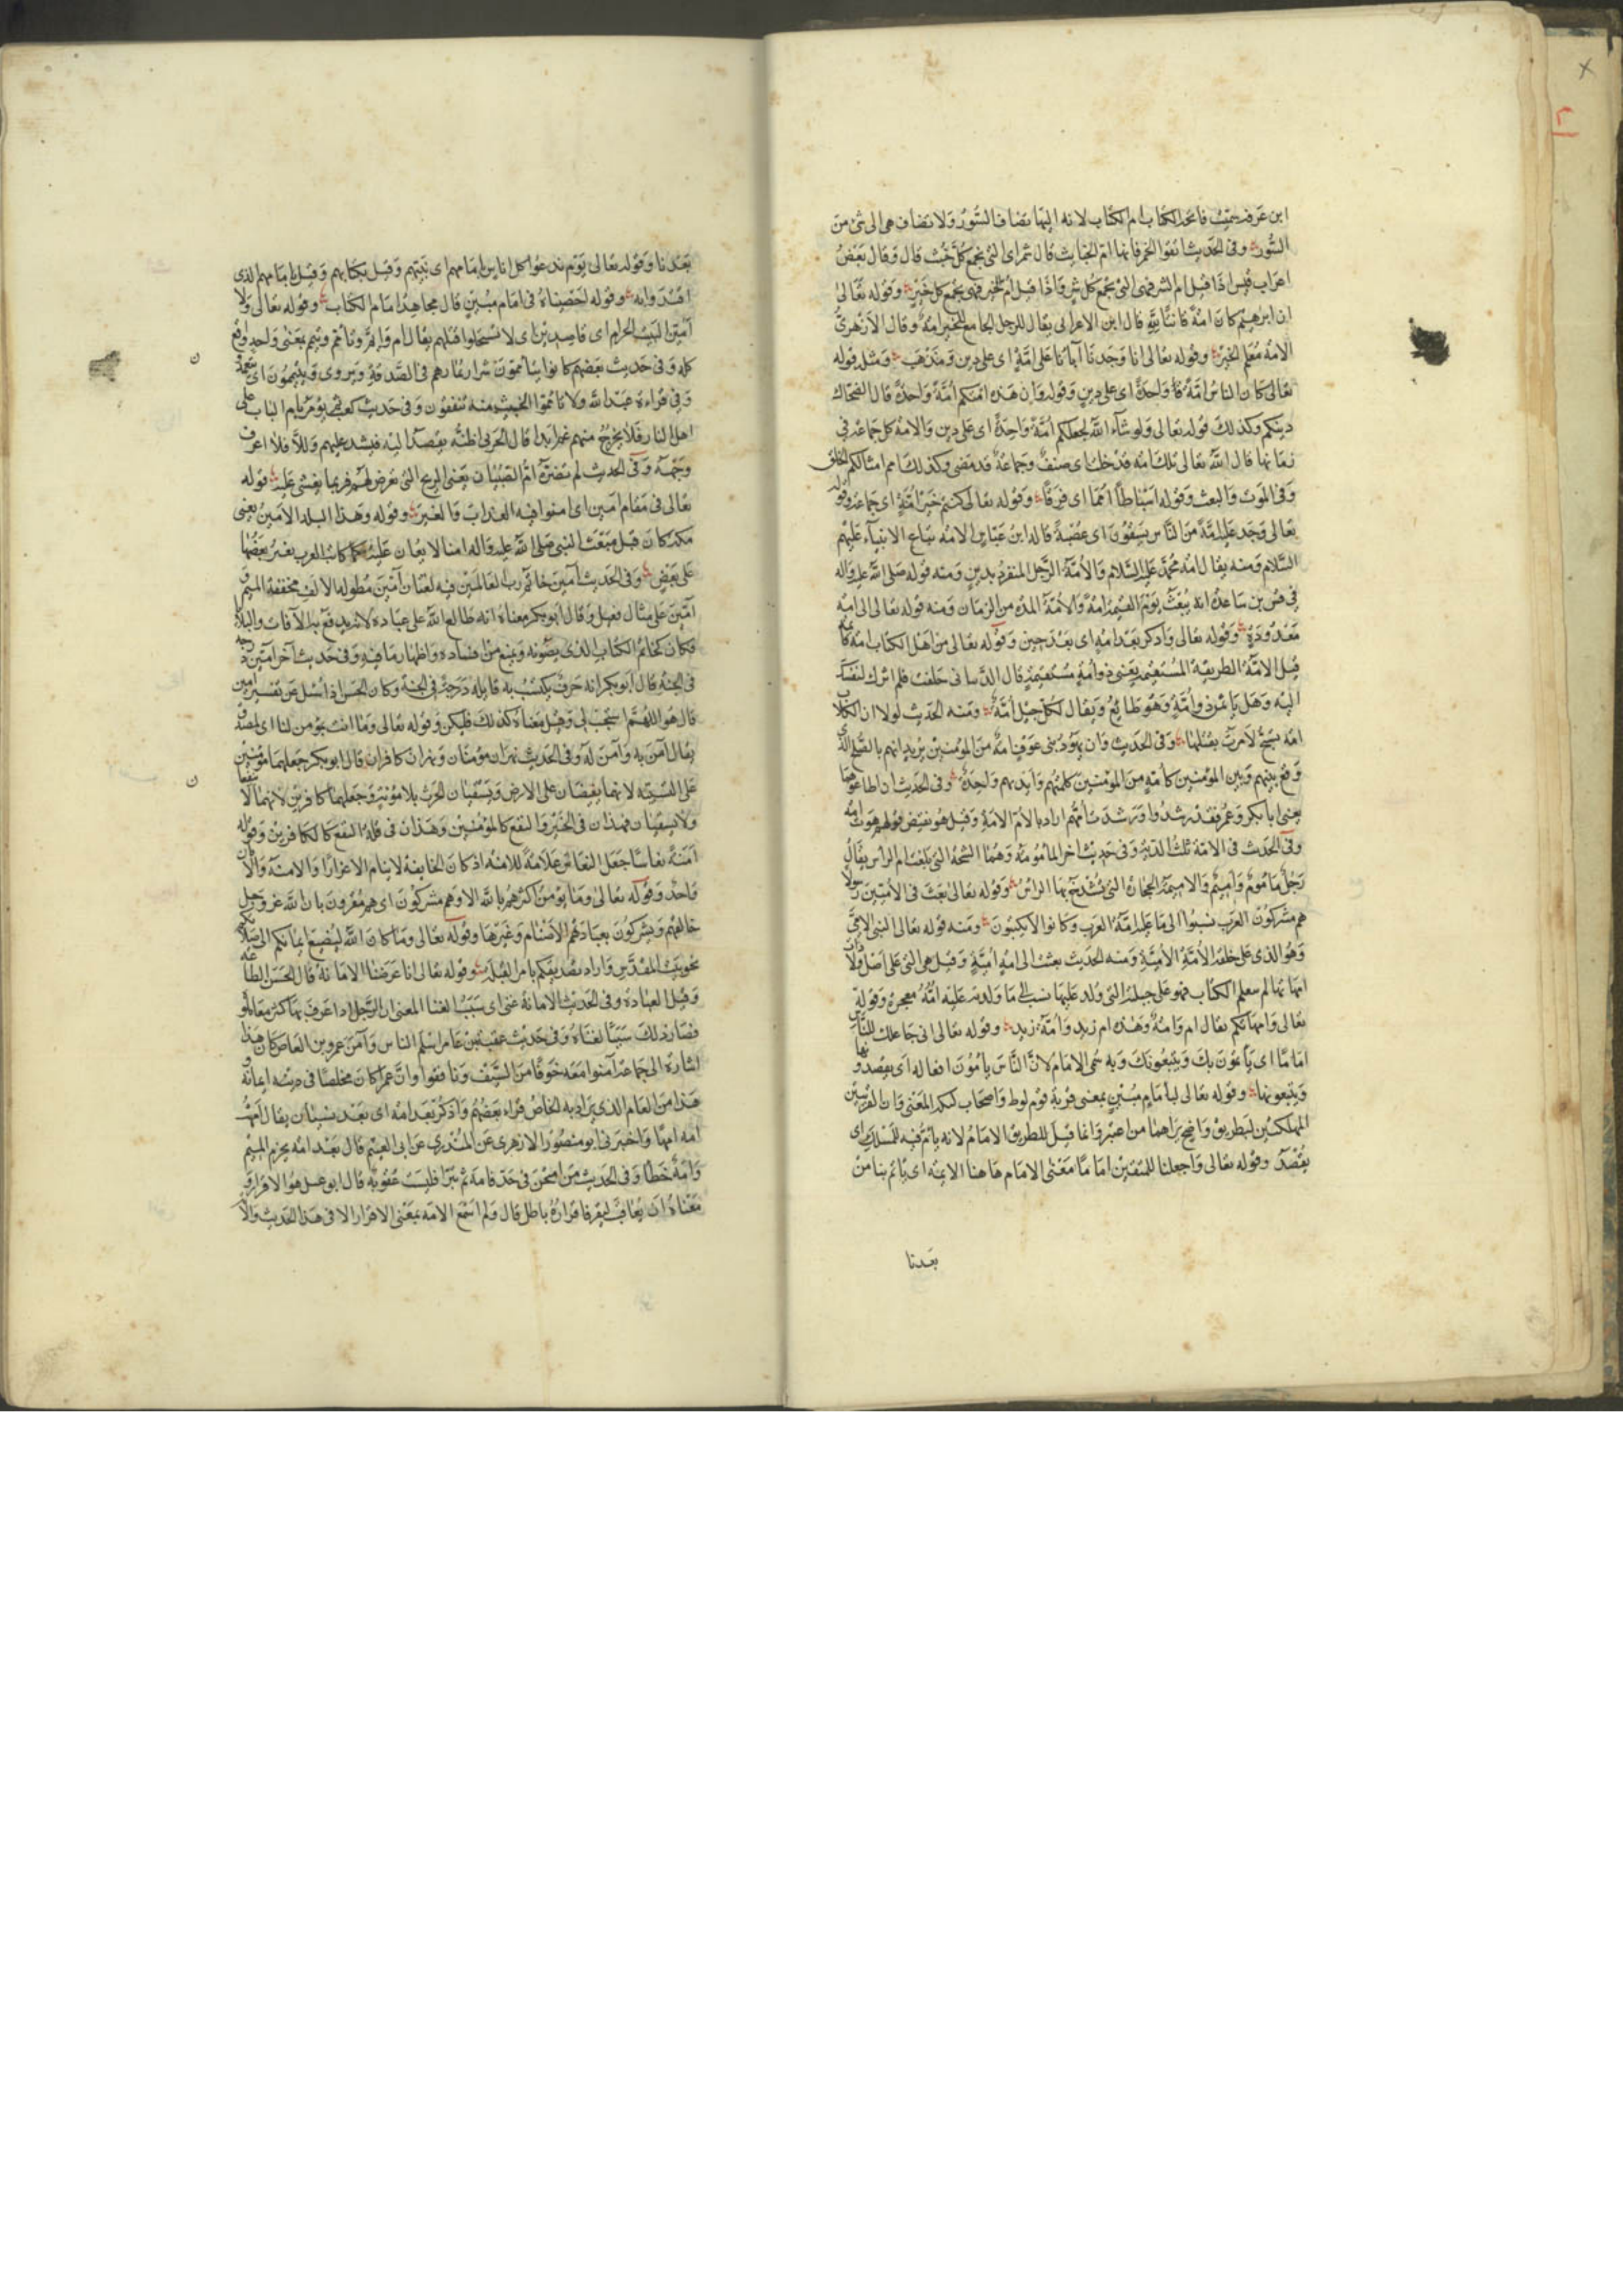 ابن عرفة سميت فاتحة الكتاب ام الكتاب لانه اليها تضاف السور ولا تضاف هى الى شئ من
السور وفى الحديث اتقوا الخمر فانها ام الخبائث قال شمر اى التى تجمع كل خبث قال وقال بعض
اعراب قيس اذا قيل ام الشر فهى التى تجمع كل شر واذا قيل ام الخير فهى تجمع كل خير وقوله تعالى
ان ابرهيم كان امة قانتا لله قال ابن الاعرابى يقال للرجل الجامع للخير امة وقال الازهرى
الامة معلم الخير وقوله تعالى انا وجدنا آباءنا على امة اى على دين ومذهب ومثله قوله
تعالى كان الناس امة واحدة اى على دين وقوله وان هذه امتكم امة واحدة قال الضحاك
دينكم وكذلك قوله تعالى ولو شاء الله لجعلكم امة واحدة اى على دين والامة كل جماعة فى
زمانها قال الله تعالى تلك امة قد خلت اى صنف وجماعة قد مضى وكذلك امم امثالكم الخلق
وفى الموت والبعث وقوله اسباطا امما اى فرقا وقوله تعالى كنتم خير امة اى جماعة وقوله
تعالى وجد عليه امة من الناس يسقون اى عصبة قاله ابن عباس الامة تباع الانبياء عليهم
السلام ومنه يقال امة محمد عليه السلام والامة الرجل المنفرد بدين ومنه قوله صلى الله عليه واله
فى قس بن ساعدة انه يبعث يوم القيمة امة والامة المدة من الزمان ومنه قوله تعالى الى امة
معدودة وقوله تعالى وادكر بعد امة اى بعد حين وقوله تعالى من اهل الكتاب امة قائمة
قيل الامة الطريقة المستقيمة يعنى ذو امة مستقيمة قال الذبيانى حلفت فلم اترك لنفسك
ريبة وهل يأثمن ذو امة وهو طائع ويقال لكل جيل امة ومنه الحديث لولا ان الكلاب
امة تسبح لامرت بقتلها وفى الحديث وان يهود بنى عوف امة من المؤمنين يريد انهم بالصلح الذى
وقع بينهم وبين المؤمنين كامة من المؤمنين كلمتهم وايديهم واحدة وفى الحديث ان اطاعوهما
يعنى ابا بكر وعمر فقد رشدوا ورشدت امهم اراد بالام الامة وقيل هو نقيض قولهم هوت امه
وفى الحديث فى الامة ثلث الدية وفى حديث آخر المأمومة وهما الشجة التى بلغت ام الرأس يقال
رجل مأموم واميم والاميمة الحجارة التى تشدخ بها الراس وقوله تعالى بعث فى الاميين رسولا
هم مشركون العرب نسبوا الى ما عليه امة العرب وكانوا لا يكتبون ومنه قوله تعالى النبى الامى
وهو الذى على خلقة الامة الامية ومنه الحديث بعثت الى امة امية وقيل هى التى على اصل ولادات
امهاتها لم تتعلم الكتاب فهو على جبلته التى ولد عليها نسب الى ما ولدته عليه امه معجزة وقوله
تعالى وامهاتكم يقال ام وامة وهذه ام زيد وامة زيد وقوله تعالى انى جاعلك للناس
اماما اى يأتمون بك ويتبعونك وبه سمى الامام لان الناس يأمون افعاله اى يقصدونها
ويتبعونها وقوله تعالى لبامام مبين بمعنى قرية قوم لوط واصحاب ليكة المعنى وان القريتين
المهلكتين لبطريق واضح يراهما من اعتبر وانما قيل للطريق الامام لانه يأتم فيه للمسلك اى
يقصد وقوله تعالى واجعلنا للمتقين اماما معنى الامام هاهنا الائمة اى يأتم بنا من
بعدنا
بعدنا وقوله تعالى يوم ندعوا كل اناس بامامهم اى بنبيهم وقيل بكتابهم وقيل بامامهم الذى
اقتدوا به وقوله احصيناه فى امام مبين قال مجاهد امام الكتاب وقوله تعالى ولا
آمين البيت الحرام اى قاصدين اى لا تستحلوا قتلهم يقال ام وامم وتأمم وتيمم بمعنى واحد وقع
كله وفى حديث بعضهم كانوا يتأممون شرار ثمارهم فى الصدقة ويروى ويتيممون اى يتعمدون
وفى قراءة عبد الله ولا تأمموا الخبيث منه تنفقون وفى حديث كعب ثم يؤمر بأم الباب على
اهل النار فلا يخرج منهم غم ابدا قال الحربى اظنه يقصد اليه فيسد عليهم والا فلا اعرف
وجهه وفى الحديث لم تضره ام الصبيان يعنى الريح التى تعرض لهم فربما يغشى عليه قوله
تعالى فى مقام امين اى امنوا فيه العذاب والغير وقوله وهذا البلد الامين يعنى
مكة كان قبل مبعث النبى صلى الله عليه واله امنا لا يغار عليه كما كانت العرب يغير بعضها
على بعض وفى الحديث آمين خاتم رب العالمين فيه لغتان آمين مطولة الالف مخففة الميم و
امين على مثال فعيل وقال ابوبكر معناه انه طابع الله على عباده لانه يدفع به الآفات والبلايا
فكان كخاتم الكتاب الذى يصونه ويمنع من افساده واظهار ما فيه وفى حديث آخر آمين درجة
فى الجنة قال ابوبكر انه حرف يكتسب به قائله درجة فى الجنة وكان الحسن اذا سئل عن تفسير آمين
قال هو اللهم استجب لى وقيل معناه كذلك فليكن وقوله تعالى وما انت بمؤمن لنا اى بمصدق
يقال آمن به وآمن له وفى الحديث نهران مؤمنان ونهران كافران قال ابوبكر جعلهما مؤمنين
على التشبيه لانهما يفيضان على الارض ويسقيان الحرث بلا مؤنة وجعلهما كافرين لانهما لا ينفعان
ولا يسقيان فهذان فى الخير والنفع كالمؤمنين وهذان فى قلة النفع كالكافرين وقوله
امنة نعاسا جعل النعاس علامة للامنة اذ كان الخائف لا ينام الا غرارا والامنة والامان
واحد وقوله تعالى وما يؤمن اكثرهم بالله الا وهم مشركون اى هم مقرون بان الله عز وجل
خالقهم ويشركون بعبادتهم الاصنام وغيرها وقوله تعالى وما كان الله ليضيع ايمانكم الى صلاتكم
نحو بيت المقدس واراد تصديقكم بامر القبلة وقوله تعالى انا عرضنا الامانة قال الحسن الطاعة
وقيل العبادة وفى الحديث الامانة غنى اى سبب الغنا المعنى ان الرجل اذا عرف بها كثر معاملوه
فصار ذلك سببا لغناه وفى حديث عقبة بن عامر اسلم الناس وآمن عمرو بن العاص كان هذا
اشارة الى جماعة آمنوا معه خوفا من السيف ونافقوا وان عمرا كان مخلصا فى دينه ايمانه و
هذا من العام الذى يراد به الخاص قراءة بعضهم وادكر بعد امه اى بعد نسيان يقال امهت
امه امها واخبرنى ابو منصور الازهرى عن المنذرى عن ابى الهيثم قال بعد امه بجزم الميم
وامه خطأ وفى الحديث من امتحن فى حد فامه ثم تبرأ فليست عقوبة قال ابو عبيد هو الاقرار و
معناه ان يعاقب ليقر فاقراره باطل قال ولم اسمع الامه بمعنى الاقرار الا فى هذا الحديث والا